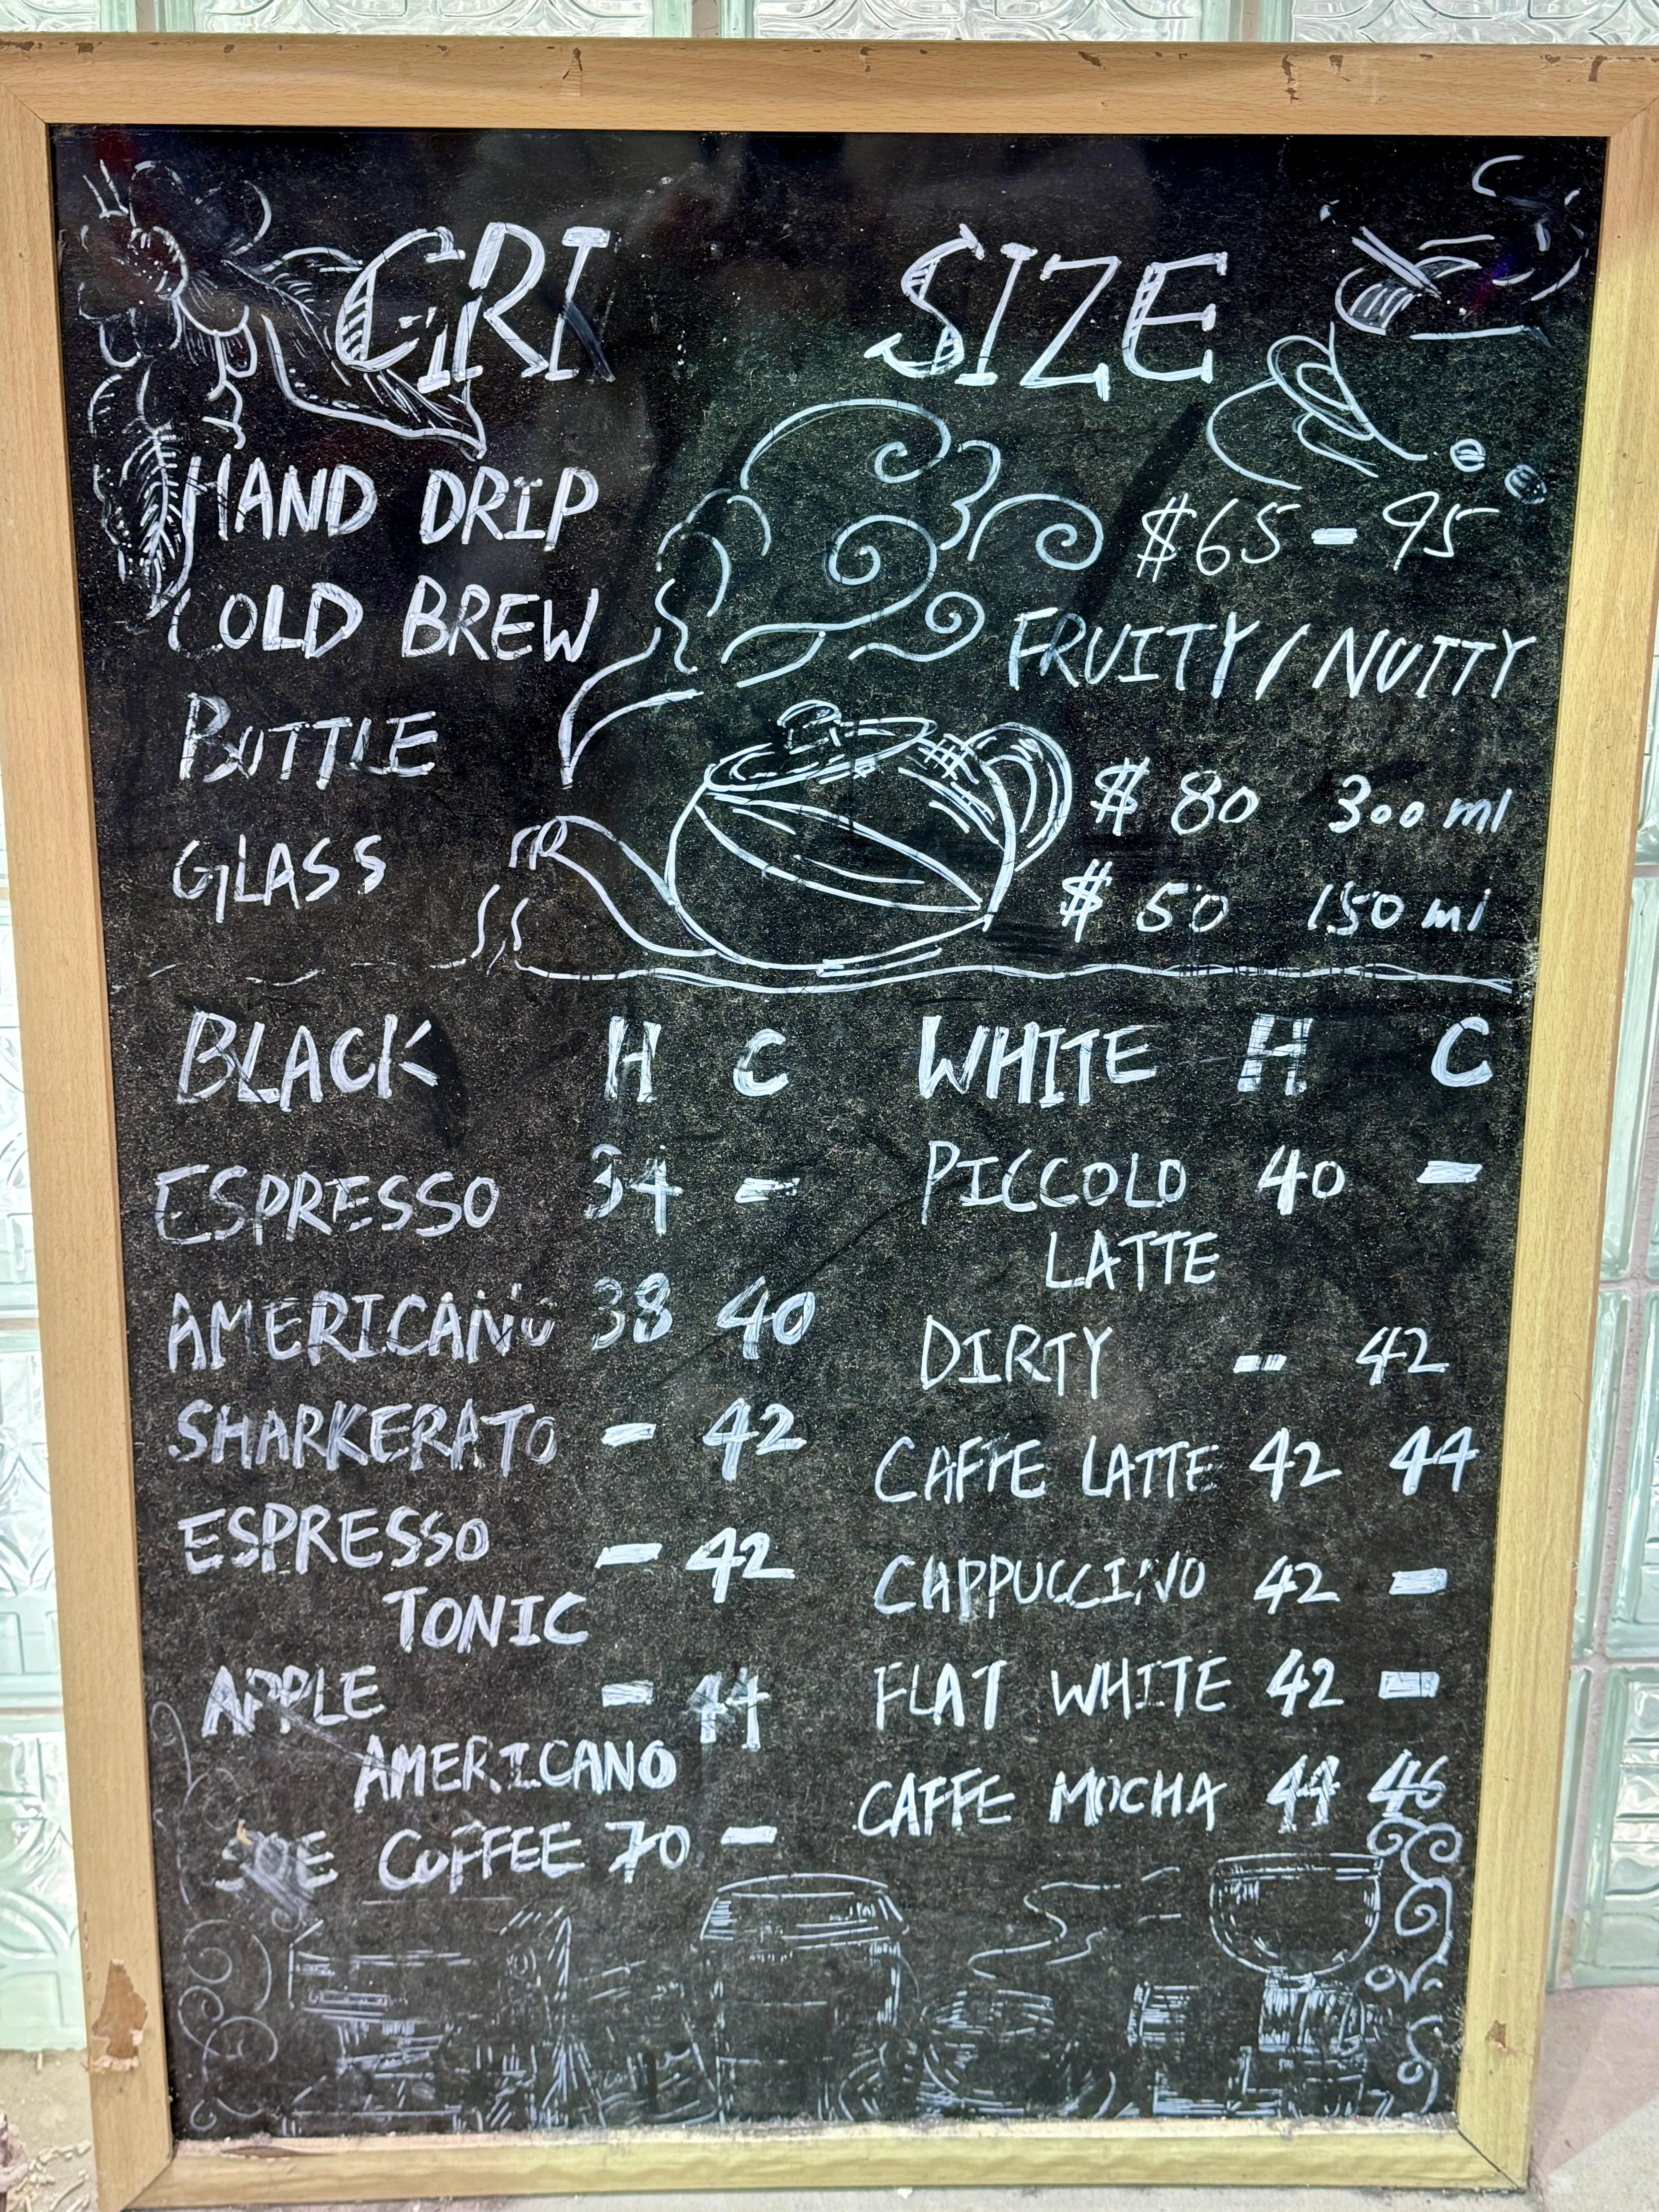 GRI SIZE
HAND DRIP $65 - 95
COLD BREW FRUITY / NUTTY
BOTTLE $ 80 300 ml
GLASS $ 50 150 ml
BLACK H C
ESPRESSO 34 -
AMERICANO 38 40
SHARKERATO - 42
ESPRESSO - 42
TONIC
APPLE - 44
AMERICANO
COFFEE 70 -
WHITE H C
PICCOLO 40 -
LATTE
DIRTY - 42
CAFFE LATTE 42 44
CAPPUCCINO 42 -
FLAT WHITE 42 -
CAFFE MOCHA 44 46